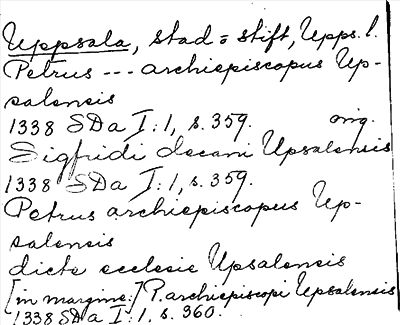 Uppsala, stad o stift, Upps. l.
Petrus --- archiepiscopus Up-
salensis
1338 SDa I:1, s. 359. orig.
Sigfridi decani Upsalensis
1338 SDa I:1, s. 359.
Petrus archiepiscopus Up-
salensis
dicte ecclesie Upsalensis
[in margine:] P. archiepiscopi Upsalensis
1338 SDa I:1, s. 360.